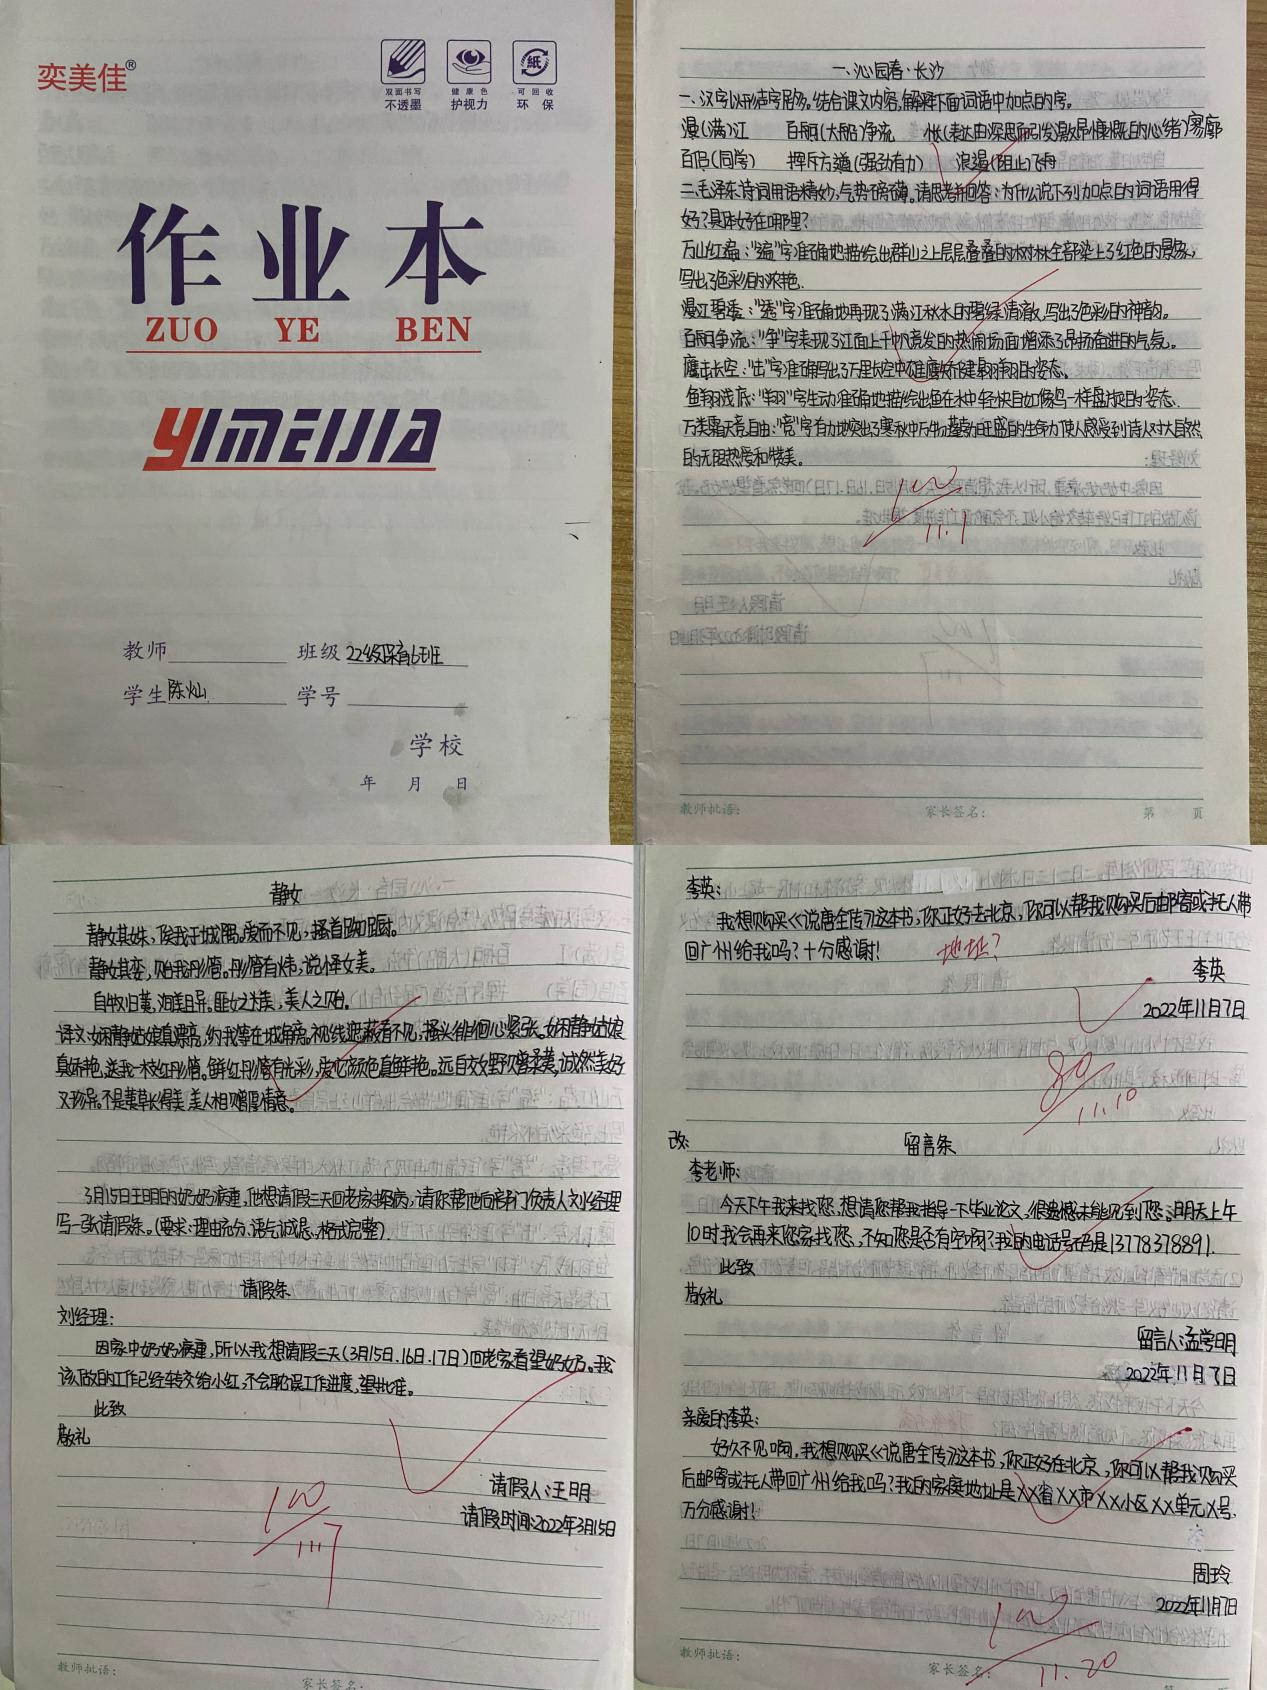 奕美佳®
双面书写
不透墨
健康色
护视力
紙
可回收
环保
作业本
ZUO YE BEN
YIMEIJIA
教师 班级 22级保育6班
学生 陈灿 学号
学校
年 月 日
一、沁园春·长沙
一、汉字以形声字居多。结合课文内容,解释下面词语中加点的字。
漫(满)江 百舸(大船)争流 怅(表达由深思而引发激昂慷慨的心绪)寥廓
百侣(同学) 挥斥方遒(强劲有力) 浪遏(阻止)飞舟
二、毛泽东诗词用语精妙,气势磅礴。请思考并回答:为什么说下列加点的词语用得
好?具体好在哪里?
万山红遍:"遍"字准确地描绘出群山之上层层叠叠的树林全部染上了红色的景象,
写出了色彩的浓艳.
漫江碧透:"透"字准确地再现了满江秋水的碧绿清澈,写出了色彩的神韵。
百舸争流:"争"字表现了江面上千帆竞发的热闹场面,增添了昂扬奋进的气氛。
鹰击长空:"击"字准确写出了万里长空中雄鹰矫健翱翔的姿态。
鱼翔浅底:"翔"字生动准确地描绘出鱼在水中轻快自如像鸟一样盘旋的姿态.
万类霜天竞自由:"竞"字有力地突出了寒秋中万物蓬勃旺盛的生命力使人感受到诗人对大自然
的无限热爱和赞美。
100
11.1
教师批语: 家长签名: 第 页
静女
静女其姝,俟我于城隅。爱而不见,搔首踟蹰。
静女其娈,贻我彤管。彤管有炜,说怿女美。
自牧归荑,洵美且异。匪女之为美,美人之贻。
译文:娴静姑娘真漂亮,约我等在城角旁。视线遮蔽看不见,搔头徘徊心紧张。娴静姑娘
真娇艳,送我一枝红彤管。鲜红彤管有光彩,爱它颜色真鲜艳。远自郊野赠柔荑,诚然美好
又珍异。不是荑草长得美,美人相赠厚情意。
3月15日王明的奶奶病重,他想请假三天回老家探病,请你帮他向部门负责人刘小经理
写一张请假条。(要求:理由充分、语气诚恳、格式完整)
请假条
刘经理:
因家中奶奶病重,所以我想请假三天(3月15日、16日、17日)回老家看望奶奶。我
该做的工作已经转交给小红,不会耽误工作进度,望批准。
此致
敬礼
请假人:王明
请假时间:2022年3月15日
100
11.7
教师批语: 家长签名:
李英:
我想购买《说唐全传》这本书,你正好去北京,你可以帮我购买后邮寄或托人带
回广州给我吗?十分感谢! 地址?
李英
2022年11月7日
80
11.10
改: 留言条
李老师:
今天下午我来找您,想请您帮我指导一下毕业论文,很遗憾未能见到您。明天上午
10时我会再来您家找您,不知您是否有空闲?我的电话号码是13778378891.
此致
敬礼
留言人:孟学明
2022年11月7日
亲爱的李英:
好久不见啊,我想购买《说唐全传》这本书,你正好在北京,你可以帮我购买
后邮寄或托人带回广州给我吗?我的家庭地址是XX省XX市XX小区XX单元X号,
万分感谢!
周玲
2022年11月7日
100
11.20
教师批语: 家长签名: